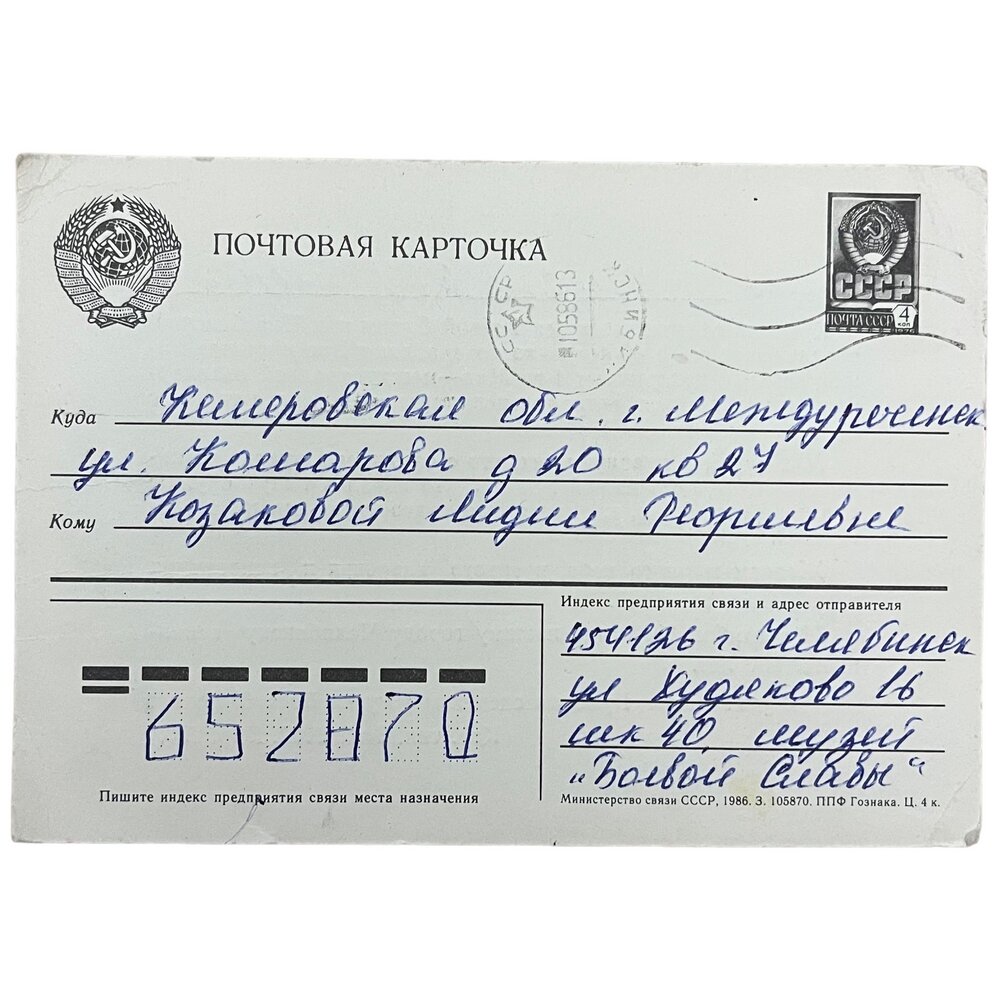 ПОЧТОВАЯ КАРТОЧКА
СССР
ПОЧТА СССР
4
КОП
1976
СССР
1058613
Куда Кемеровская обл. г. Междуреченск
ул. Комарова д 20 кв 27
Кому Козаковой Лидии Георгиевне
Индекс предприятия связи и адрес отправителя
454126 г. Челябинск
ул Худяково 16
шк 40 музей
„Боевой Славы“
652870
Пишите индекс предприятия связи места назначения
Министерство связи СССР, 1986. З. 105870. ППФ Гознака. Ц. 4 к.